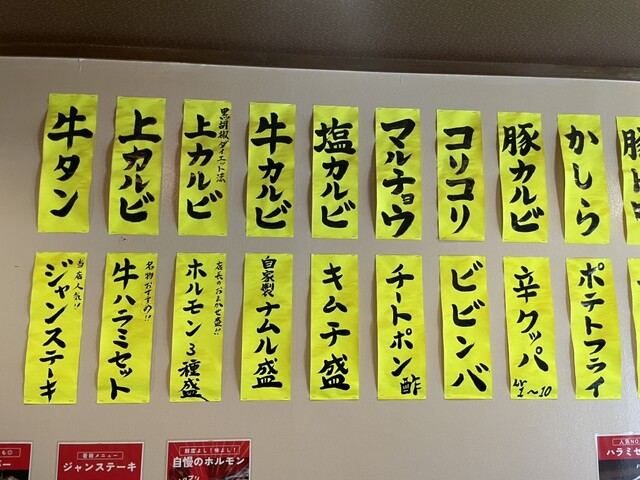 牛タン
上カルビ
黒胡椒ダイエット流
上カルビ
牛カルビ
塩カルビ
マルチョウ
コリコリ
豚カルビ
かしら
豚
当店人気!!
ジャンステーキ
名物おすすめ!!
牛ハラミセット
店長のおまかせ盛!!
ホルモン3種盛
自家製ナムル盛
キムチ盛
チートポン酢
ビビンバ
辛クッパ
Lv 1〜10
ポテトフライ
看板メニュー
ジャンステーキ
鮮度よし!味よし!
自慢のホルモン
人気NO.
ハラミセ